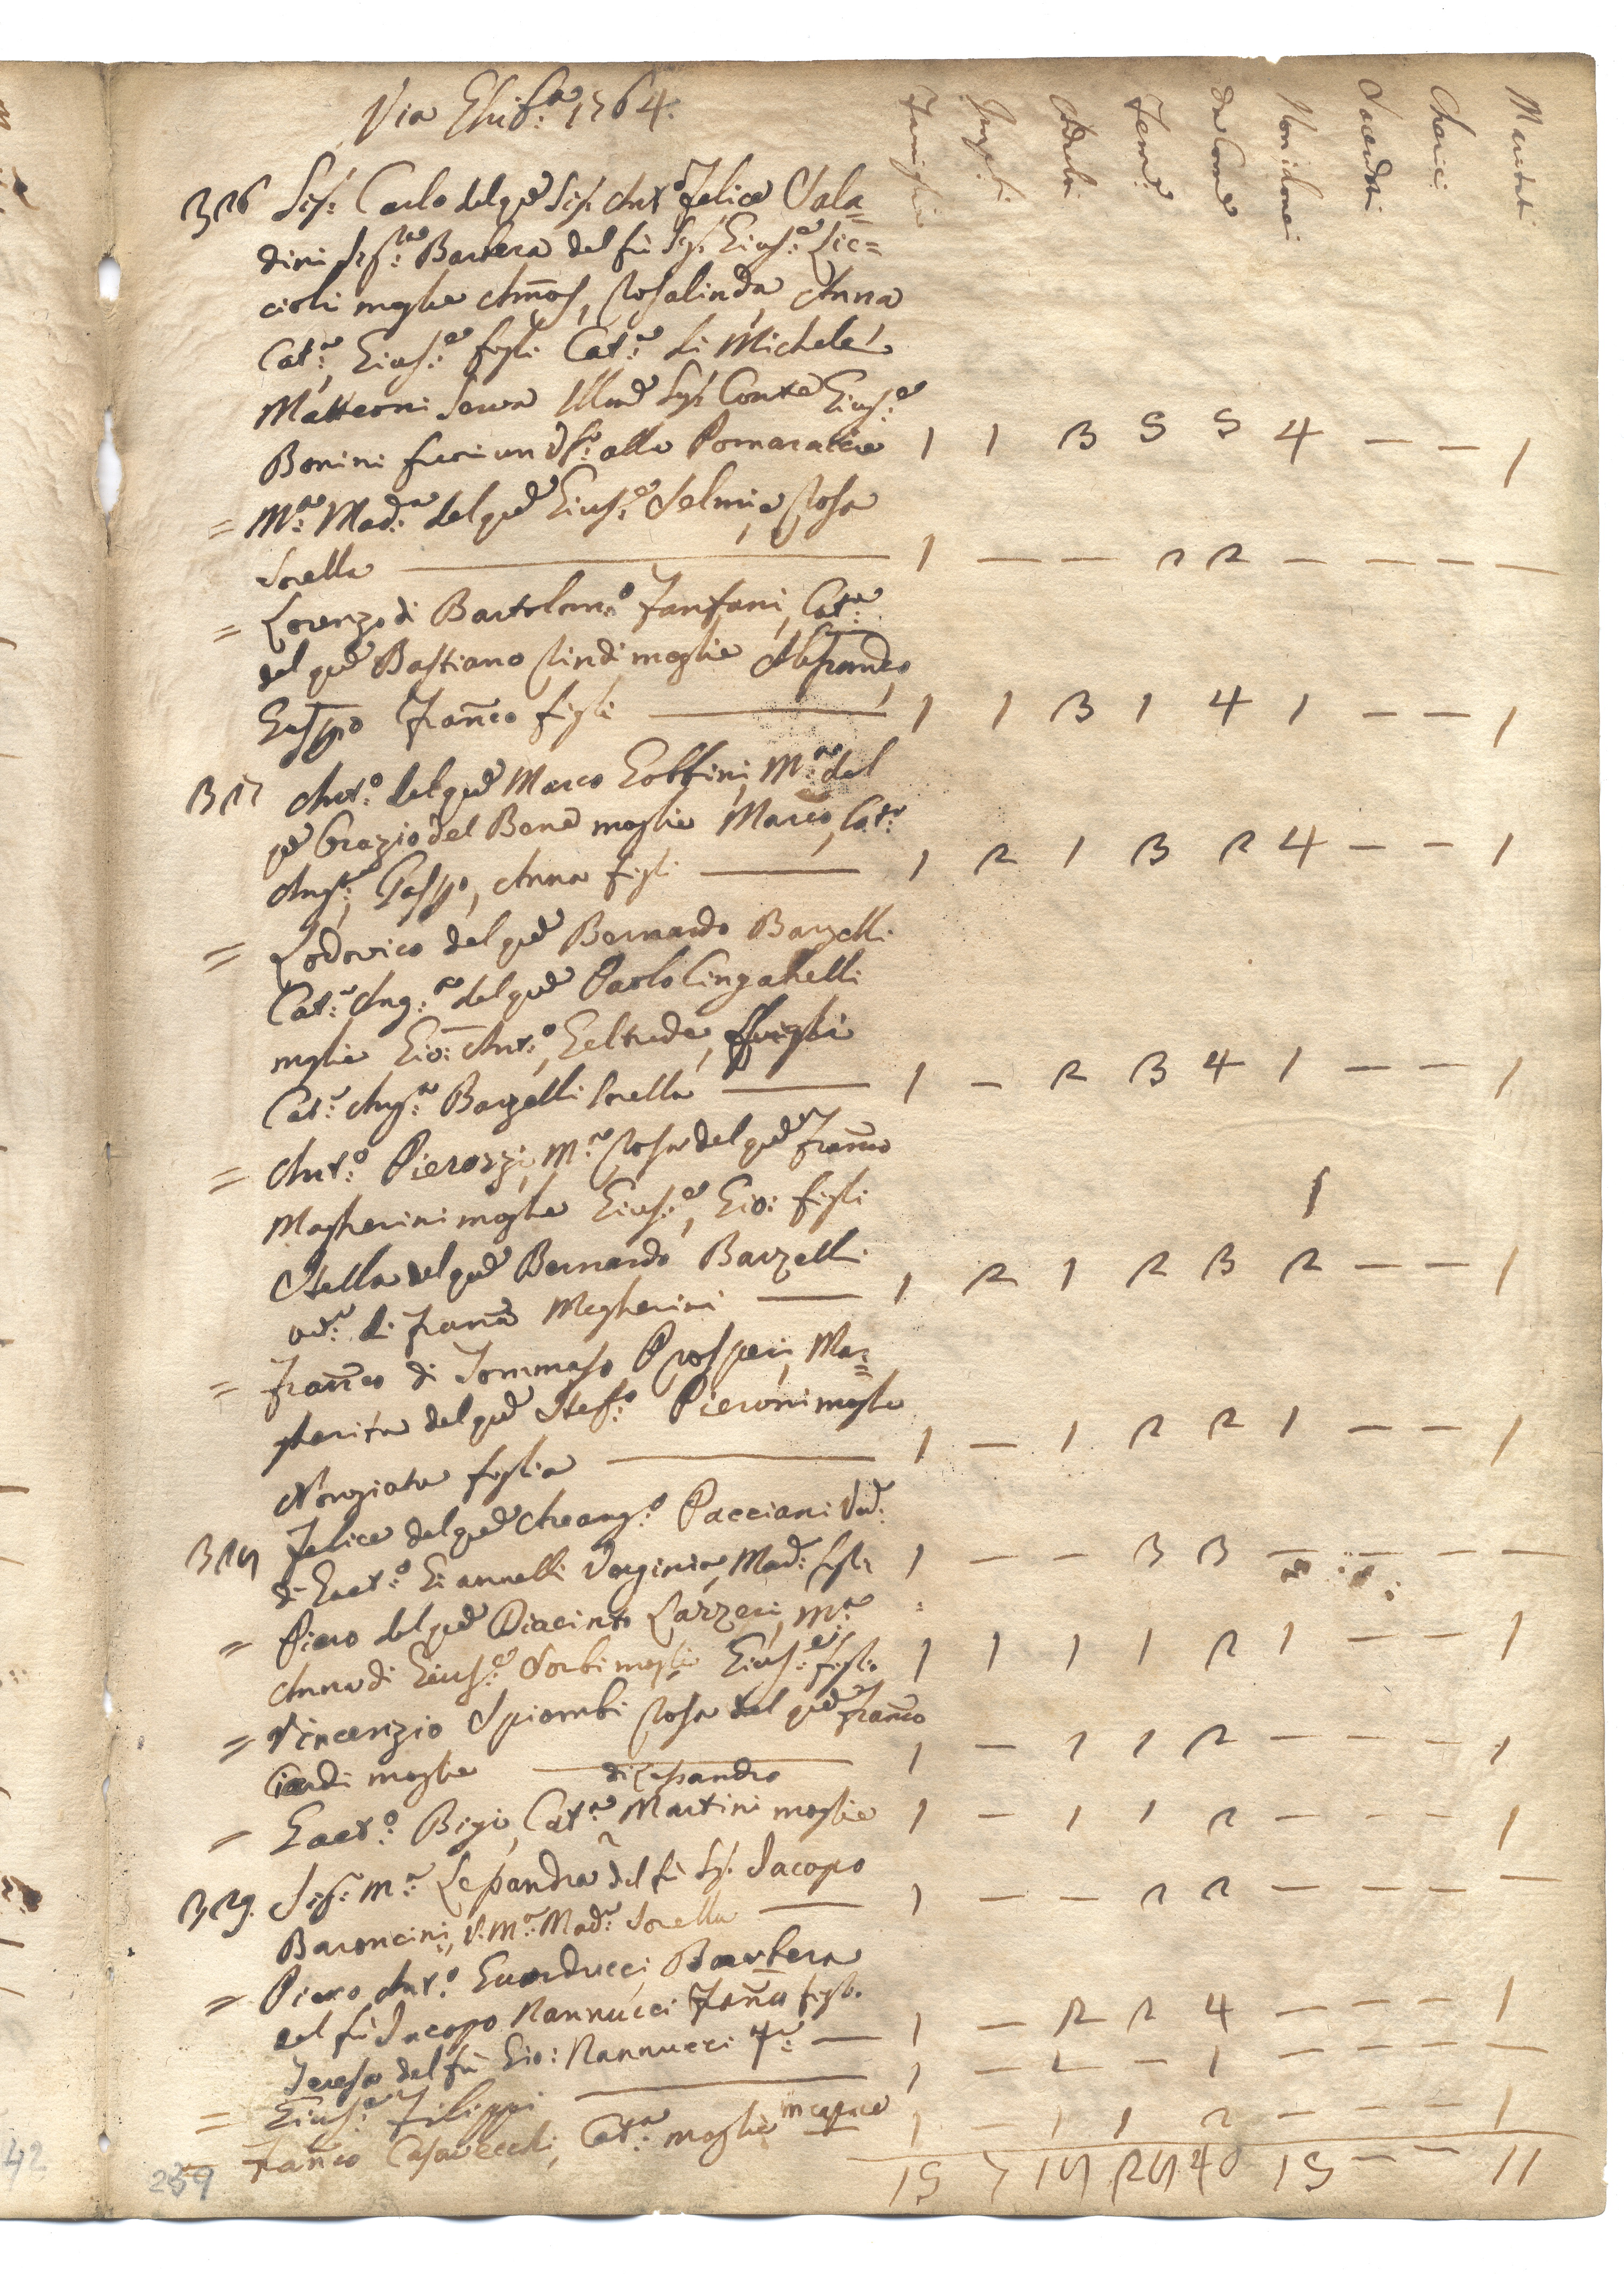 Via Ghib.a 1764.
Famiglie Ingh. Adulti Fem.e Da Com.e Non idonei Sacerdoti Cherici Maritati
326 Sig. Carlo del q.m Sig. Ant.o Felice Sala=
dini Sig.ra Barbera del fù Sig. Gius.e Lic=
cioli moglie Amos, Rosalinda, Anna
Cat.a, Gius.e figli Cat.a di Michele
Matteoni serva Sig. Conte Gius.e
Bonini fuori alla Pomarancie 1 1 3 5 5 4 — — 1
= M.a Mad.a del q.m Gius.e Selmi, e Rosa
Sorella — 1 — — 2 2 — — — —
= Lorenzo di Bartolom.o Fanfani, Cat.a
del q.m Bastiano Rindi moglie
Gasp.o Fran.co figli — 1 1 3 1 4 1 — — 1
327 Ant.o del q.m Marco Gobbini, M.a del
q.m Orazio del Bene moglie Marco, Cat.a
Ang.a, Gasp.o, Anna figli — 1 2 1 3 2 4 — — 1
= Lodovico del q.m Bernardo Barzelli
Cat.a Ang.a del q.m Paolo Cingahelli
moglie Gio: Ant.o, Geltrude, figli
Cat.a Ang.a Barzelli sorella — 1 — 2 3 4 1 — — 1
= Ant.o Pierozzi, M.a Rosa del q.m Fran.co
Magherini moglie Gius.e, Gio: figli 1
Stella del q.m Bernardo Barzelli
ved.a di Fran.co Magherini — 1 2 1 2 3 2 — — 1
= Fran.co di Tommaso Prosperi, Mar=
gherita del q.m Stef.o Pieroni moglie
Nonziata figlia — 1 — 1 2 2 1 — — 1
328 Felice del q.m Arcang.o Pacciani Ved.
di Gaet.o Giannelli Verginia, Mad.a figli 1 — — 3 3 — — — —
= Piero del q.m Diacinto Lazzeri, M.a
Anna di Gius.e Sorbi moglie Gius.e figlio 1 1 1 1 2 1 — — 1
= Vincenzio Spiombi Rosa del q.m Fran.co
Ciardi moglie — 1 — 1 1 2 — — — 1
di Lessandro
= Gaet.o Bigi, Cat.a Martini moglie 1 — 1 1 2 — — — 1
329. Sig.a M.a Lessandra del fù Sig. Jacopo
Baroncini, V. M.a Mad.a Sorella — 1 — — 2 2 — — — —
= Piero Ant.o Guarducci, Barbera
del fù Jacopo Nannucci figli
Teresa del fù Gio: Nannucci — 1 — 2 2 4 — — — 1
= Gius.e Filippi — 1 — 1 — 1 — — — —
= Fran.co Casavecchi, Cat.a moglie incapace 1 — 1 1 2 — — — 1
15 7 18 28 40 15 — — 11
259
42